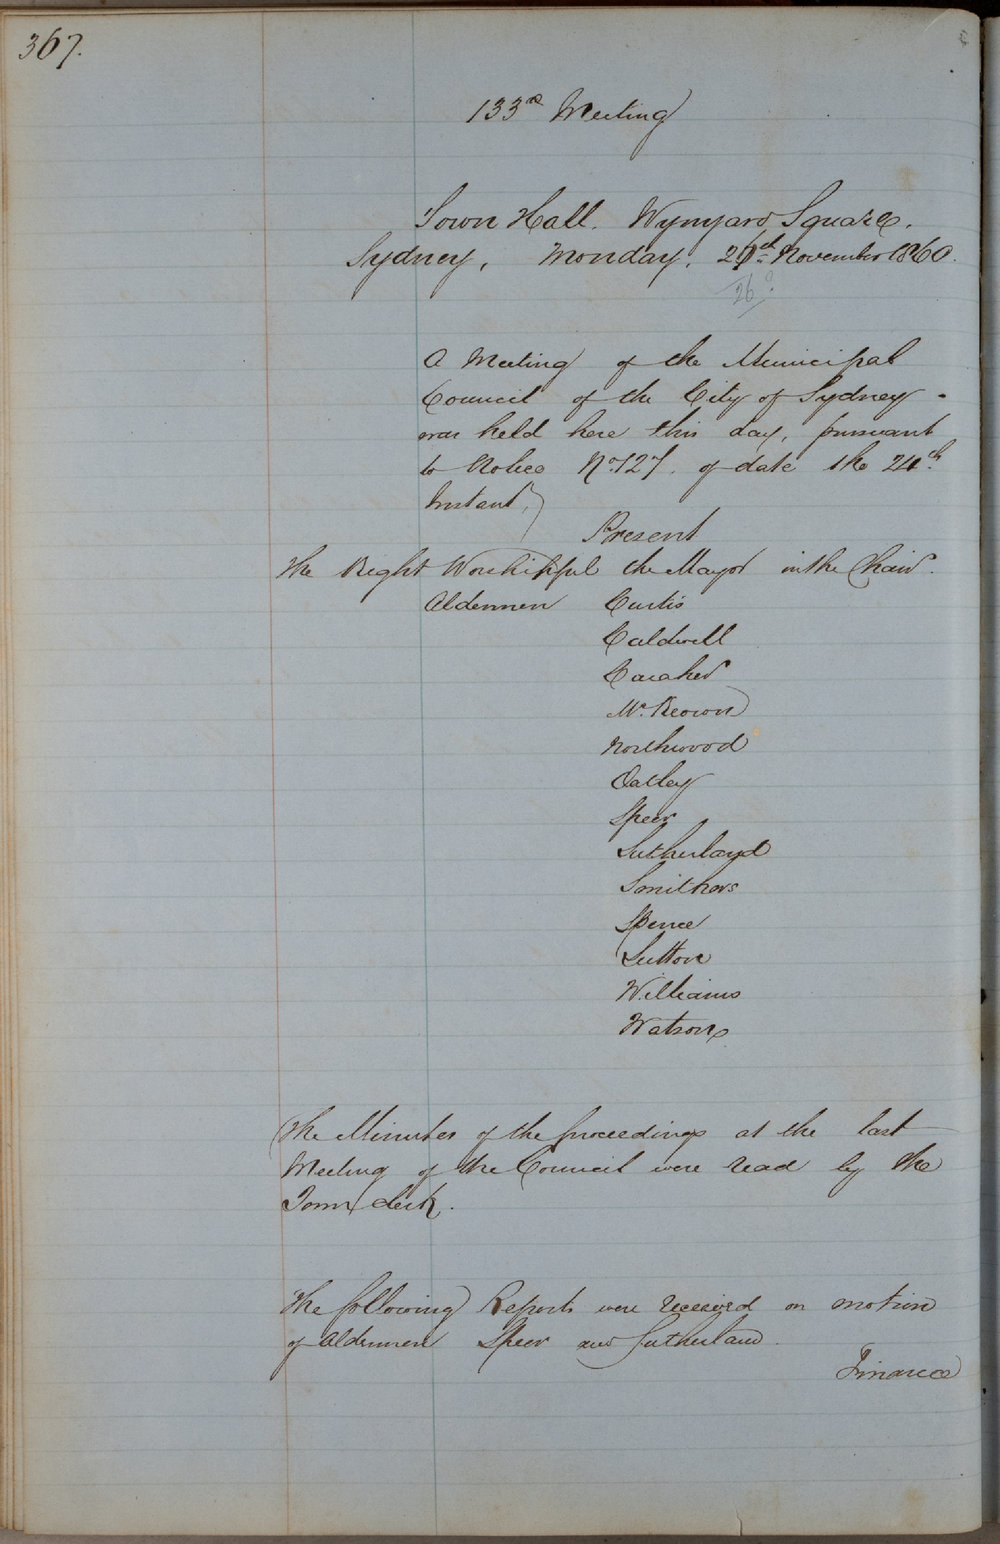 367.
133rd Meeting
Town Hall. Wynyard Square.
Sydney, Monday, 26th November 1860.
26?
A Meeting of the Municipal
Council of the City of Sydney
was held here this day, pursuant
to Notice No. 127. of date the 24th
Instant,
Present
The Right Worshipful the Mayor in the Chair.
Aldermen Curtis
Caldwell
Caraher
McKeown
Northwood
Oatley
Speer
Sutherland
Smithers
Spence
Sutton
Williams
Watson
The Minutes of the proceedings at the last
Meeting of the Council were read by the
Town Clerk.
The following Reports were received on motion
of Aldermen Speer and Sutherland.
Finance